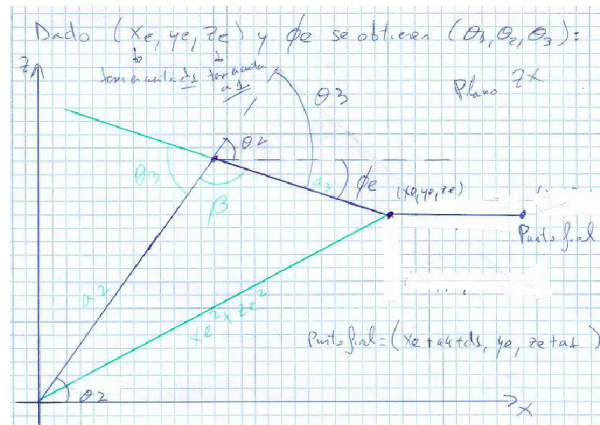 Dado (xe, ye, ze) y ϕe se obtienen (θ1, θ2, θ3):
z
Plano zx
θ3
θ2
θ3
β
a3
ϕe
(xe, ye, ze)
Punto final
a2
xe² + ze²
Punto final = (xe+a4+d5, ye, ze+a1)
θ2
x